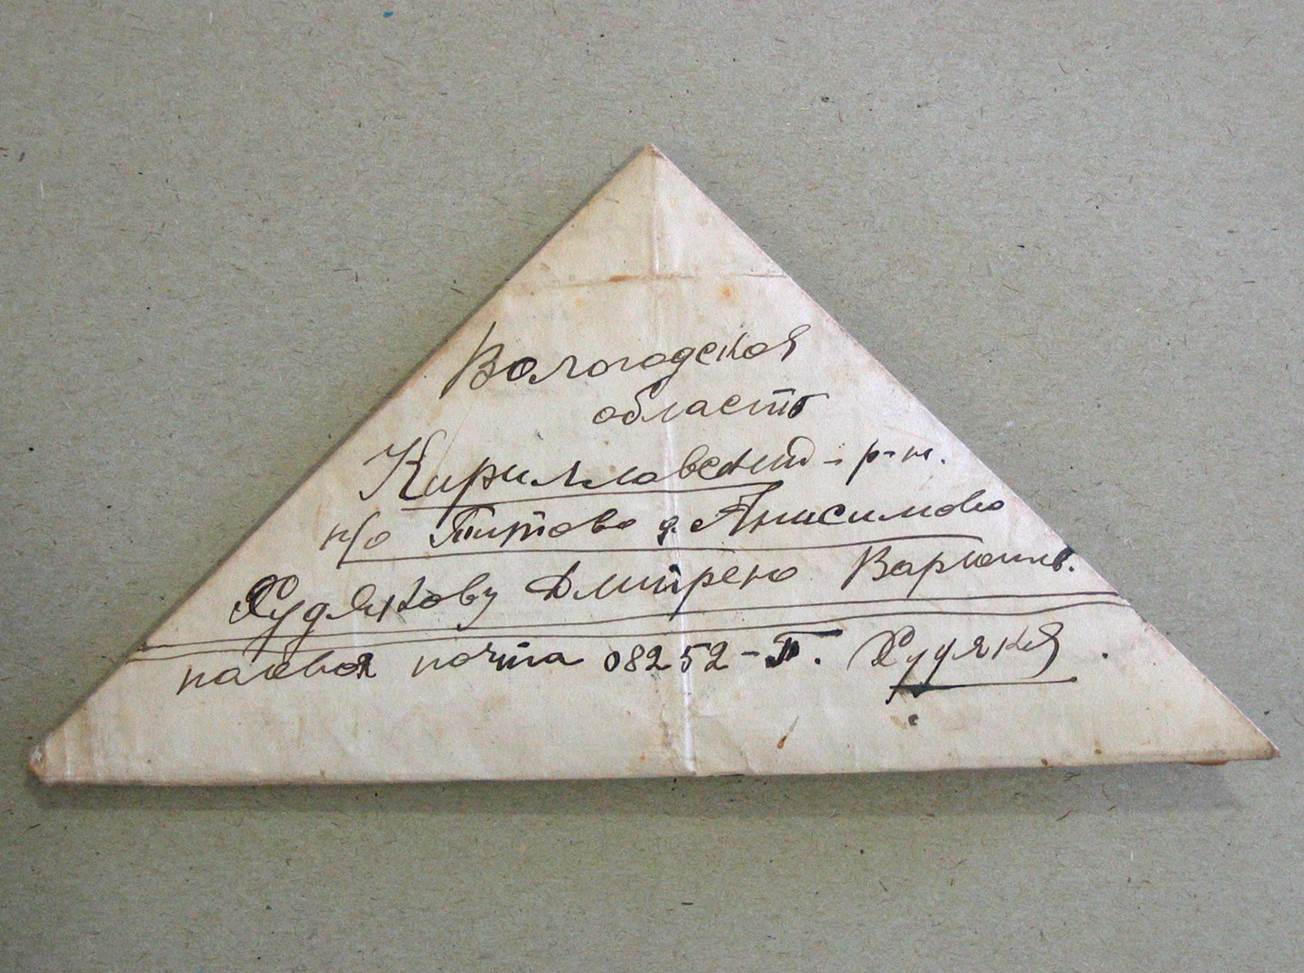 Вологодская
область
Кирилловский р-н.
п/о Титово д. Анисимово
Худякову Дмитрею
палевая почта 08252-П. Худяков